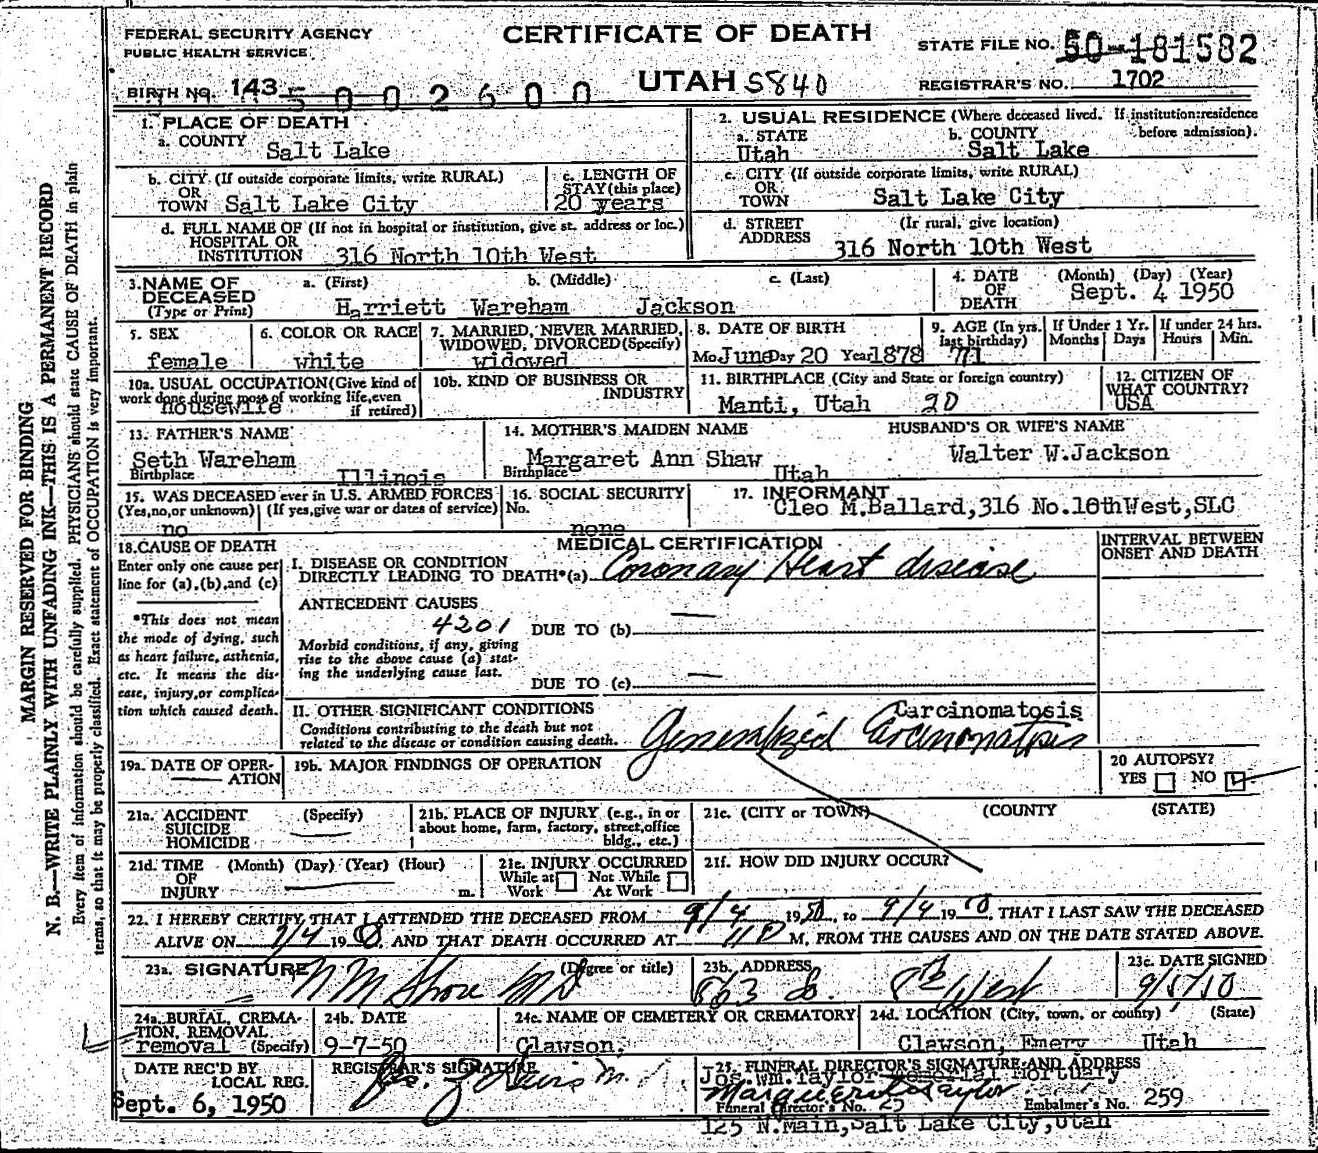 FEDERAL SECURITY AGENCY
PUBLIC HEALTH SERVICE
CERTIFICATE OF DEATH
STATE FILE NO. 50-181582
BIRTH NO. 143 5002600
UTAH 5840
REGISTRAR'S NO. 1702
1. PLACE OF DEATH
a. COUNTY Salt Lake
2. USUAL RESIDENCE (Where deceased lived. If institution: residence before admission).
a. STATE Utah b. COUNTY Salt Lake
b. CITY (If outside corporate limits, write RURAL) OR TOWN Salt Lake City
c. LENGTH OF STAY (this place) 20 years
c. CITY (If outside corporate limits, write RURAL) OR TOWN Salt Lake City
d. FULL NAME OF (If not in hospital or institution, give st. address or loc.) HOSPITAL OR INSTITUTION 316 North 10th West
d. STREET ADDRESS (If rural, give location) 316 North 10th West
3. NAME OF DECEASED (Type or Print) a. (First) b. (Middle) c. (Last)
Harriett Wareham Jackson
4. DATE OF DEATH (Month) (Day) (Year) Sept. 4 1950
5. SEX female
6. COLOR OR RACE white
7. MARRIED, NEVER MARRIED, WIDOWED, DIVORCED (Specify) widowed
8. DATE OF BIRTH Mo June Day 20 Year 1878
9. AGE (In yrs. last birthday) 771
If Under 1 Yr. Months Days
If under 24 hrs. Hours Min.
10a. USUAL OCCUPATION (Give kind of work done during most of working life, even if retired) housewife
10b. KIND OF BUSINESS OR INDUSTRY
11. BIRTHPLACE (City and State or foreign country) Manti, Utah 20
12. CITIZEN OF WHAT COUNTRY? USA
13. FATHER'S NAME Seth Wareham
Birthplace Illinois
14. MOTHER'S MAIDEN NAME Margaret Ann Shaw
Birthplace Utah
HUSBAND'S OR WIFE'S NAME Walter W. Jackson
15. WAS DECEASED ever in U.S. ARMED FORCES (Yes, no, or unknown) (If yes, give war or dates of service) no
16. SOCIAL SECURITY No. none
17. INFORMANT Cleo M. Ballard, 316 No. 10thWest, SLC
18. CAUSE OF DEATH
Enter only one cause per line for (a), (b), and (c)
*This does not mean the mode of dying, such as heart failure, asthenia, etc. It means the disease, injury, or complication which caused death.
MEDICAL CERTIFICATION
INTERVAL BETWEEN ONSET AND DEATH
I. DISEASE OR CONDITION DIRECTLY LEADING TO DEATH* (a) Coronary Heart disease
ANTECEDENT CAUSES
4201 DUE TO (b)
Morbid conditions, if any, giving rise to the above cause (a) stating the underlying cause last.
DUE TO (c)
II. OTHER SIGNIFICANT CONDITIONS Carcinomatosis
Conditions contributing to the death but not related to the disease or condition causing death. Generalized Carcinomatosis
19a. DATE OF OPERATION
19b. MAJOR FINDINGS OF OPERATION
20 AUTOPSY? YES NO
21a. ACCIDENT SUICIDE HOMICIDE (Specify)
21b. PLACE OF INJURY (e.g., in or about home, farm, factory, street, office bldg., etc.)
21c. (CITY or TOWN) (COUNTY) (STATE)
21d. TIME OF INJURY (Month) (Day) (Year) (Hour) m.
21e. INJURY OCCURRED While at Work Not While At Work
21f. HOW DID INJURY OCCUR?
22. I HEREBY CERTIFY, THAT I ATTENDED THE DECEASED FROM 9/4 1950, to 9/4 1950, THAT I LAST SAW THE DECEASED
ALIVE ON 9/4 1950, AND THAT DEATH OCCURRED AT 11 P M, FROM THE CAUSES AND ON THE DATE STATED ABOVE.
23a. SIGNATURE (Degree or title) MD
23b. ADDRESS 8th West
23c. DATE SIGNED 9/5/50
24a. BURIAL, CREMATION, REMOVAL (Specify) removal
24b. DATE 9-7-50
24c. NAME OF CEMETERY OR CREMATORY Clawson,
24d. LOCATION (City, town, or county) (State) Clawson, Emery Utah
DATE REC'D BY LOCAL REG. Sept. 6, 1950
REGISTRAR'S SIGNATURE
25. FUNERAL DIRECTOR'S SIGNATURE AND ADDRESS
Jos. Wm. Taylor Memorial Mortuary
Marguerite Taylor
Funeral Director's No. 25 Embalmer's No. 259
125 N. Main, Salt Lake City, Utah
MARGIN RESERVED FOR BINDING
N. B.—WRITE PLAINLY, WITH UNFADING INK—THIS IS A PERMANENT RECORD
Every item of information should be carefully supplied. PHYSICIANS should state CAUSE OF DEATH in plain
terms, so that it may be properly classified. Exact statement of OCCUPATION is very important.